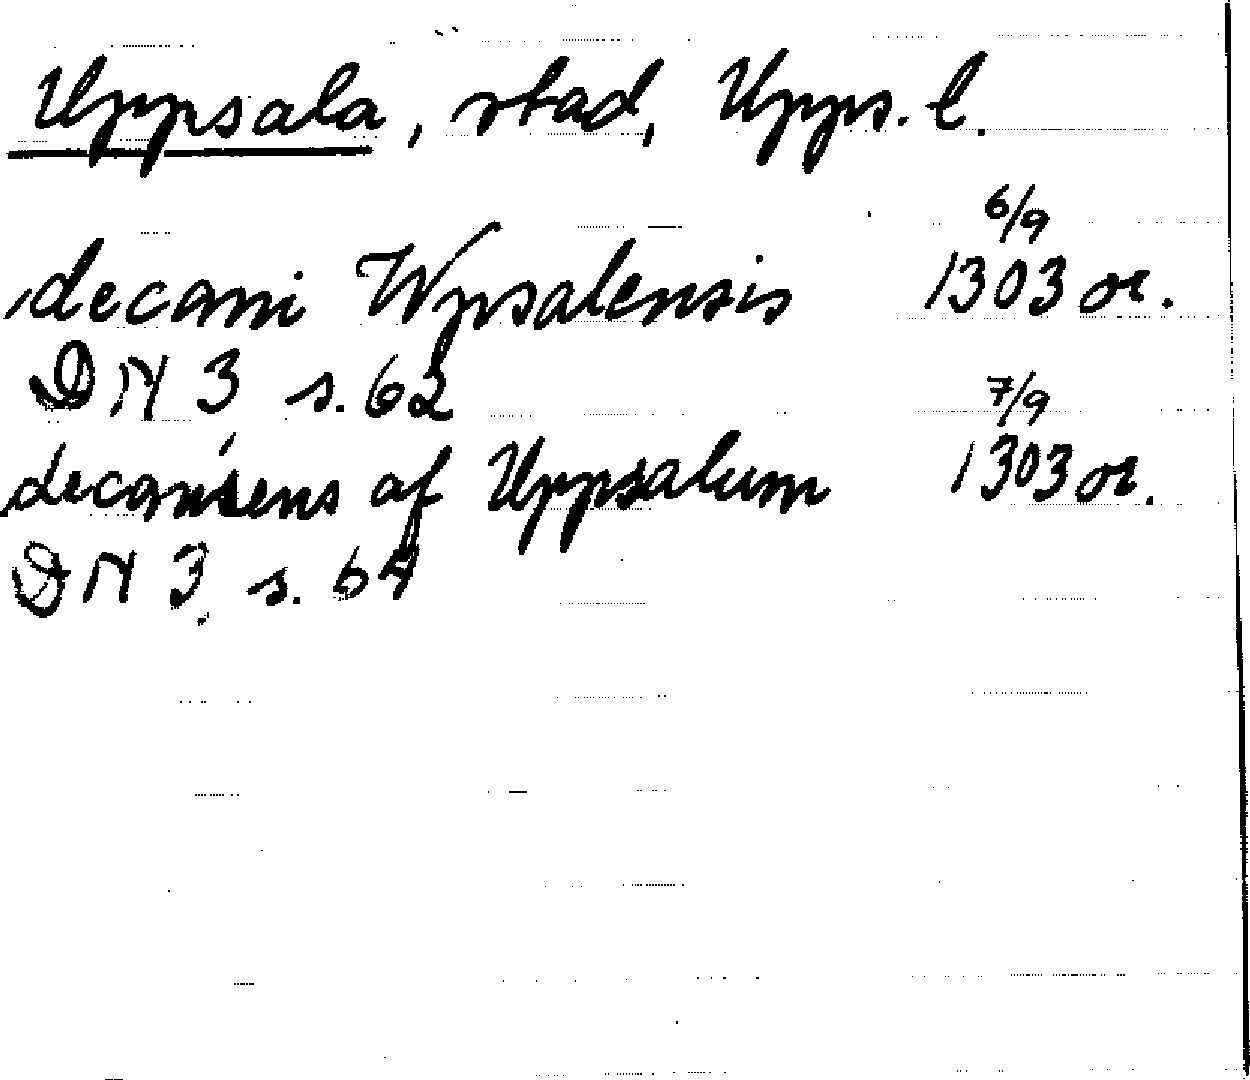 Uppsala, stad, Upps. l.
decani Wpsalensis 6/9 1303 or.
DN 3 s. 62
decansens af Uppsalum 7/9 1303 or.
DN 3 s. 64